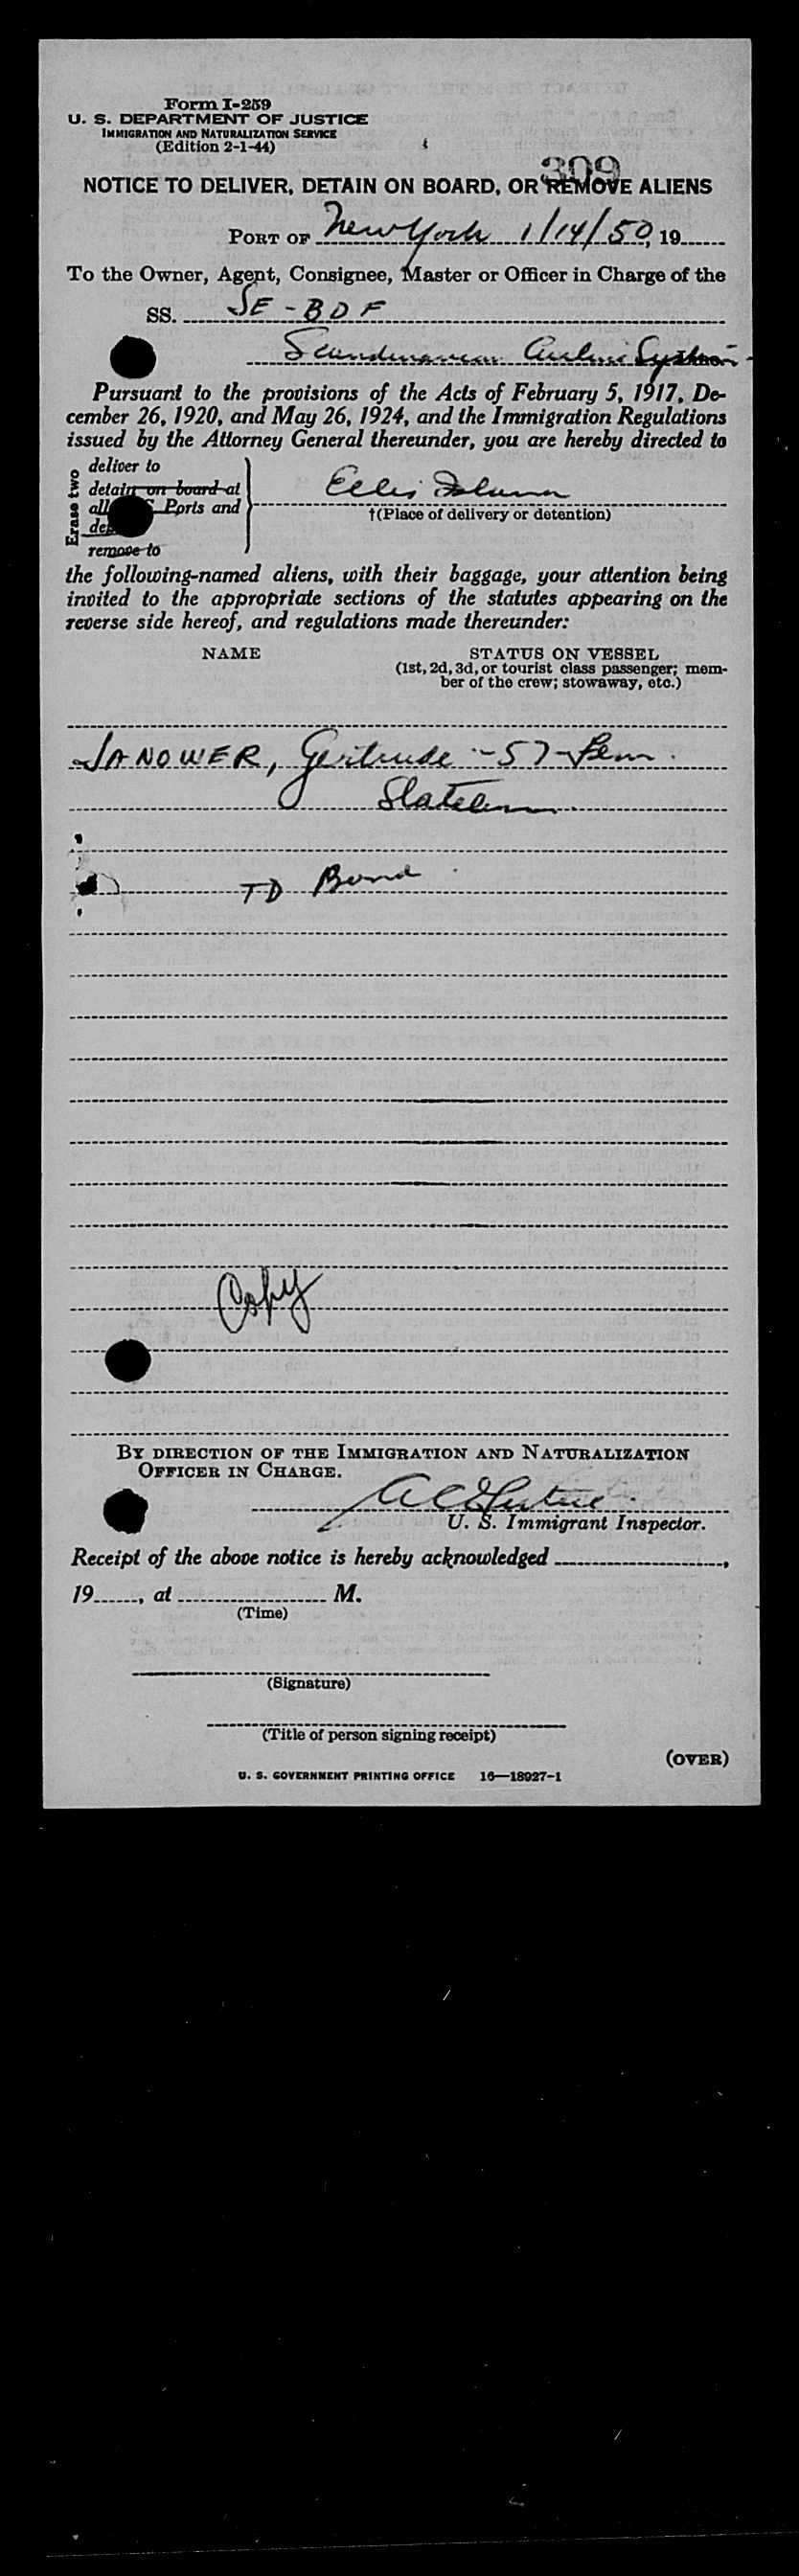 Form I-259
U. S. DEPARTMENT OF JUSTICE
IMMIGRATION AND NATURALIZATION SERVICE
(Edition 2-1-44)
309
NOTICE TO DELIVER, DETAIN ON BOARD, OR REMOVE ALIENS
PORT OF New York 1/14/50, 19
To the Owner, Agent, Consignee, Master or Officer in Charge of the
SS. SE-BDF
Scandinavian Airline System
Pursuant to the provisions of the Acts of February 5, 1917, De-
cember 26, 1920, and May 26, 1924, and the Immigration Regulations
issued by the Attorney General thereunder, you are hereby directed to
Erase two
deliver to
detain on board at
all Ports and
remove to
Ellis Island
†(Place of delivery or detention)
the following-named aliens, with their baggage, your attention being
invited to the appropriate sections of the statutes appearing on the
reverse side hereof, and regulations made thereunder:
NAME
STATUS ON VESSEL
(1st, 2d, 3d, or tourist class passenger; mem-
ber of the crew; stowaway, etc.)
JANOWER, Gertrude - 57 - Fem.
TD Bond
Copy
BY DIRECTION OF THE IMMIGRATION AND NATURALIZATION
OFFICER IN CHARGE.
U. S. Immigrant Inspector.
Receipt of the above notice is hereby acknowledged ,
19 , at M.
(Time)
(Signature)
(Title of person signing receipt)
(OVER)
U. S. GOVERNMENT PRINTING OFFICE 16—18927-1